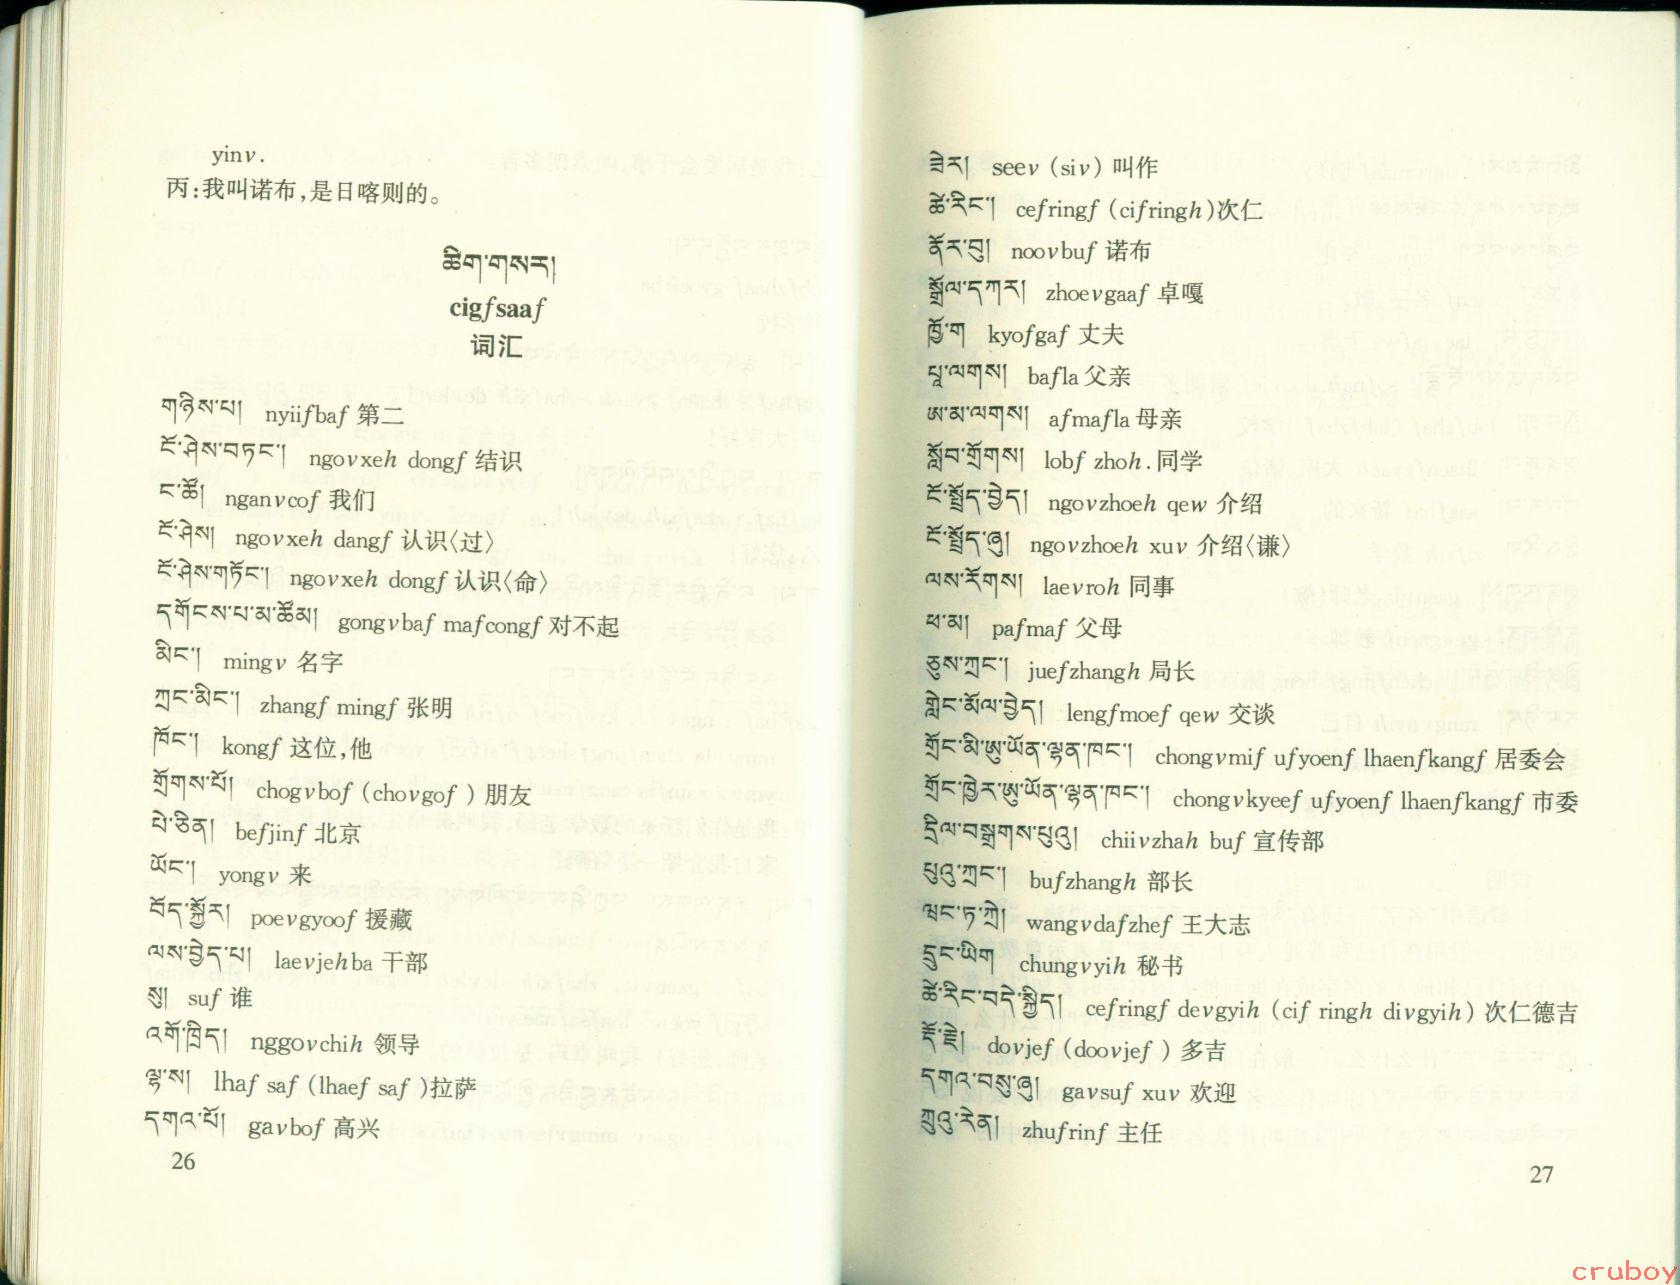 yinv.
丙:我叫诺布,是日喀则的。
ཚིག་གསར།
cigfsaaf
词汇
གཉིས་པ། nyiifbaf 第二
ངོ་ཤེས་བཏང་། ngovxeh dongf 结识
ང་ཚོ། nganvcof 我们
ངོ་ཤེས། ngovxeh dangf 认识〈过〉
ངོ་ཤེས་གཏོང་། ngovxeh dongf 认识〈命〉
དགོངས་པ་མ་ཚོམ། gongvbaf mafcongf 对不起
མིང་། mingv 名字
ཀྲང་མིང་། zhangf mingf 张明
ཁོང་། kongf 这位,他
གྲོགས་པོ། chogvbof (chovgof ) 朋友
པེ་ཅིན། befjinf 北京
ཡོང་། yongv 来
བོད་སྐྱོར། poevgyoof 援藏
ལས་བྱེད་པ། laevjehba 干部
སུ། suf 谁
འགོ་ཁྲིད། nggovchih 领导
ལྷ་ས། lhaf saf (lhaef saf )拉萨
དགའ་པོ། gavbof 高兴
26
ཟེར། seev (siv) 叫作
ཚེ་རིང་། cefringf (cifringh)次仁
ནོར་བུ། noovbuf 诺布
སྒྲོལ་དཀར། zhoevgaaf 卓嘎
ཁྱོ་ག kyofgaf 丈夫
པཱ་ལགས། bafla 父亲
ཨ་མ་ལགས། afmafla 母亲
སློབ་གྲོགས། lobf zhoh.同学
ངོ་སྤྲོད་བྱེད། ngovzhoeh qew 介绍
ངོ་སྤྲོད་ཞུ། ngovzhoeh xuv 介绍〈谦〉
ལས་རོགས། laevroh 同事
ཕ་མ། pafmaf 父母
ཅུས་ཀྲང་། juefzhangh 局长
གླེང་མོལ་བྱེད། lengfmoef qew 交谈
གྲོང་མི་ཨུ་ཡོན་ལྷན་ཁང་། chongvmif ufyoenf lhaenfkangf 居委会
གྲོང་ཁྱེར་ཨུ་ཡོན་ལྷན་ཁང་། chongvkyeef ufyoenf lhaenfkangf 市委
དྲིལ་བསྒྲགས་པུའུ། chiivzhah buf 宣传部
པུའུ་ཀྲང་། bufzhangh 部长
ཝང་ཏ་ཀྲེ། wangvdafzhef 王大志
དྲུང་ཡིག chungvyih 秘书
ཚེ་རིང་བདེ་སྐྱིད། cefringf devgyih (cif ringh divgyih) 次仁德吉
རྡོ་རྗེ། dovjef (doovjef ) 多吉
དགའ་བསུ་ཞུ། gavsuf xuv 欢迎
ཀྲུའུ་རེན། zhufrinf 主任
27
cruboy